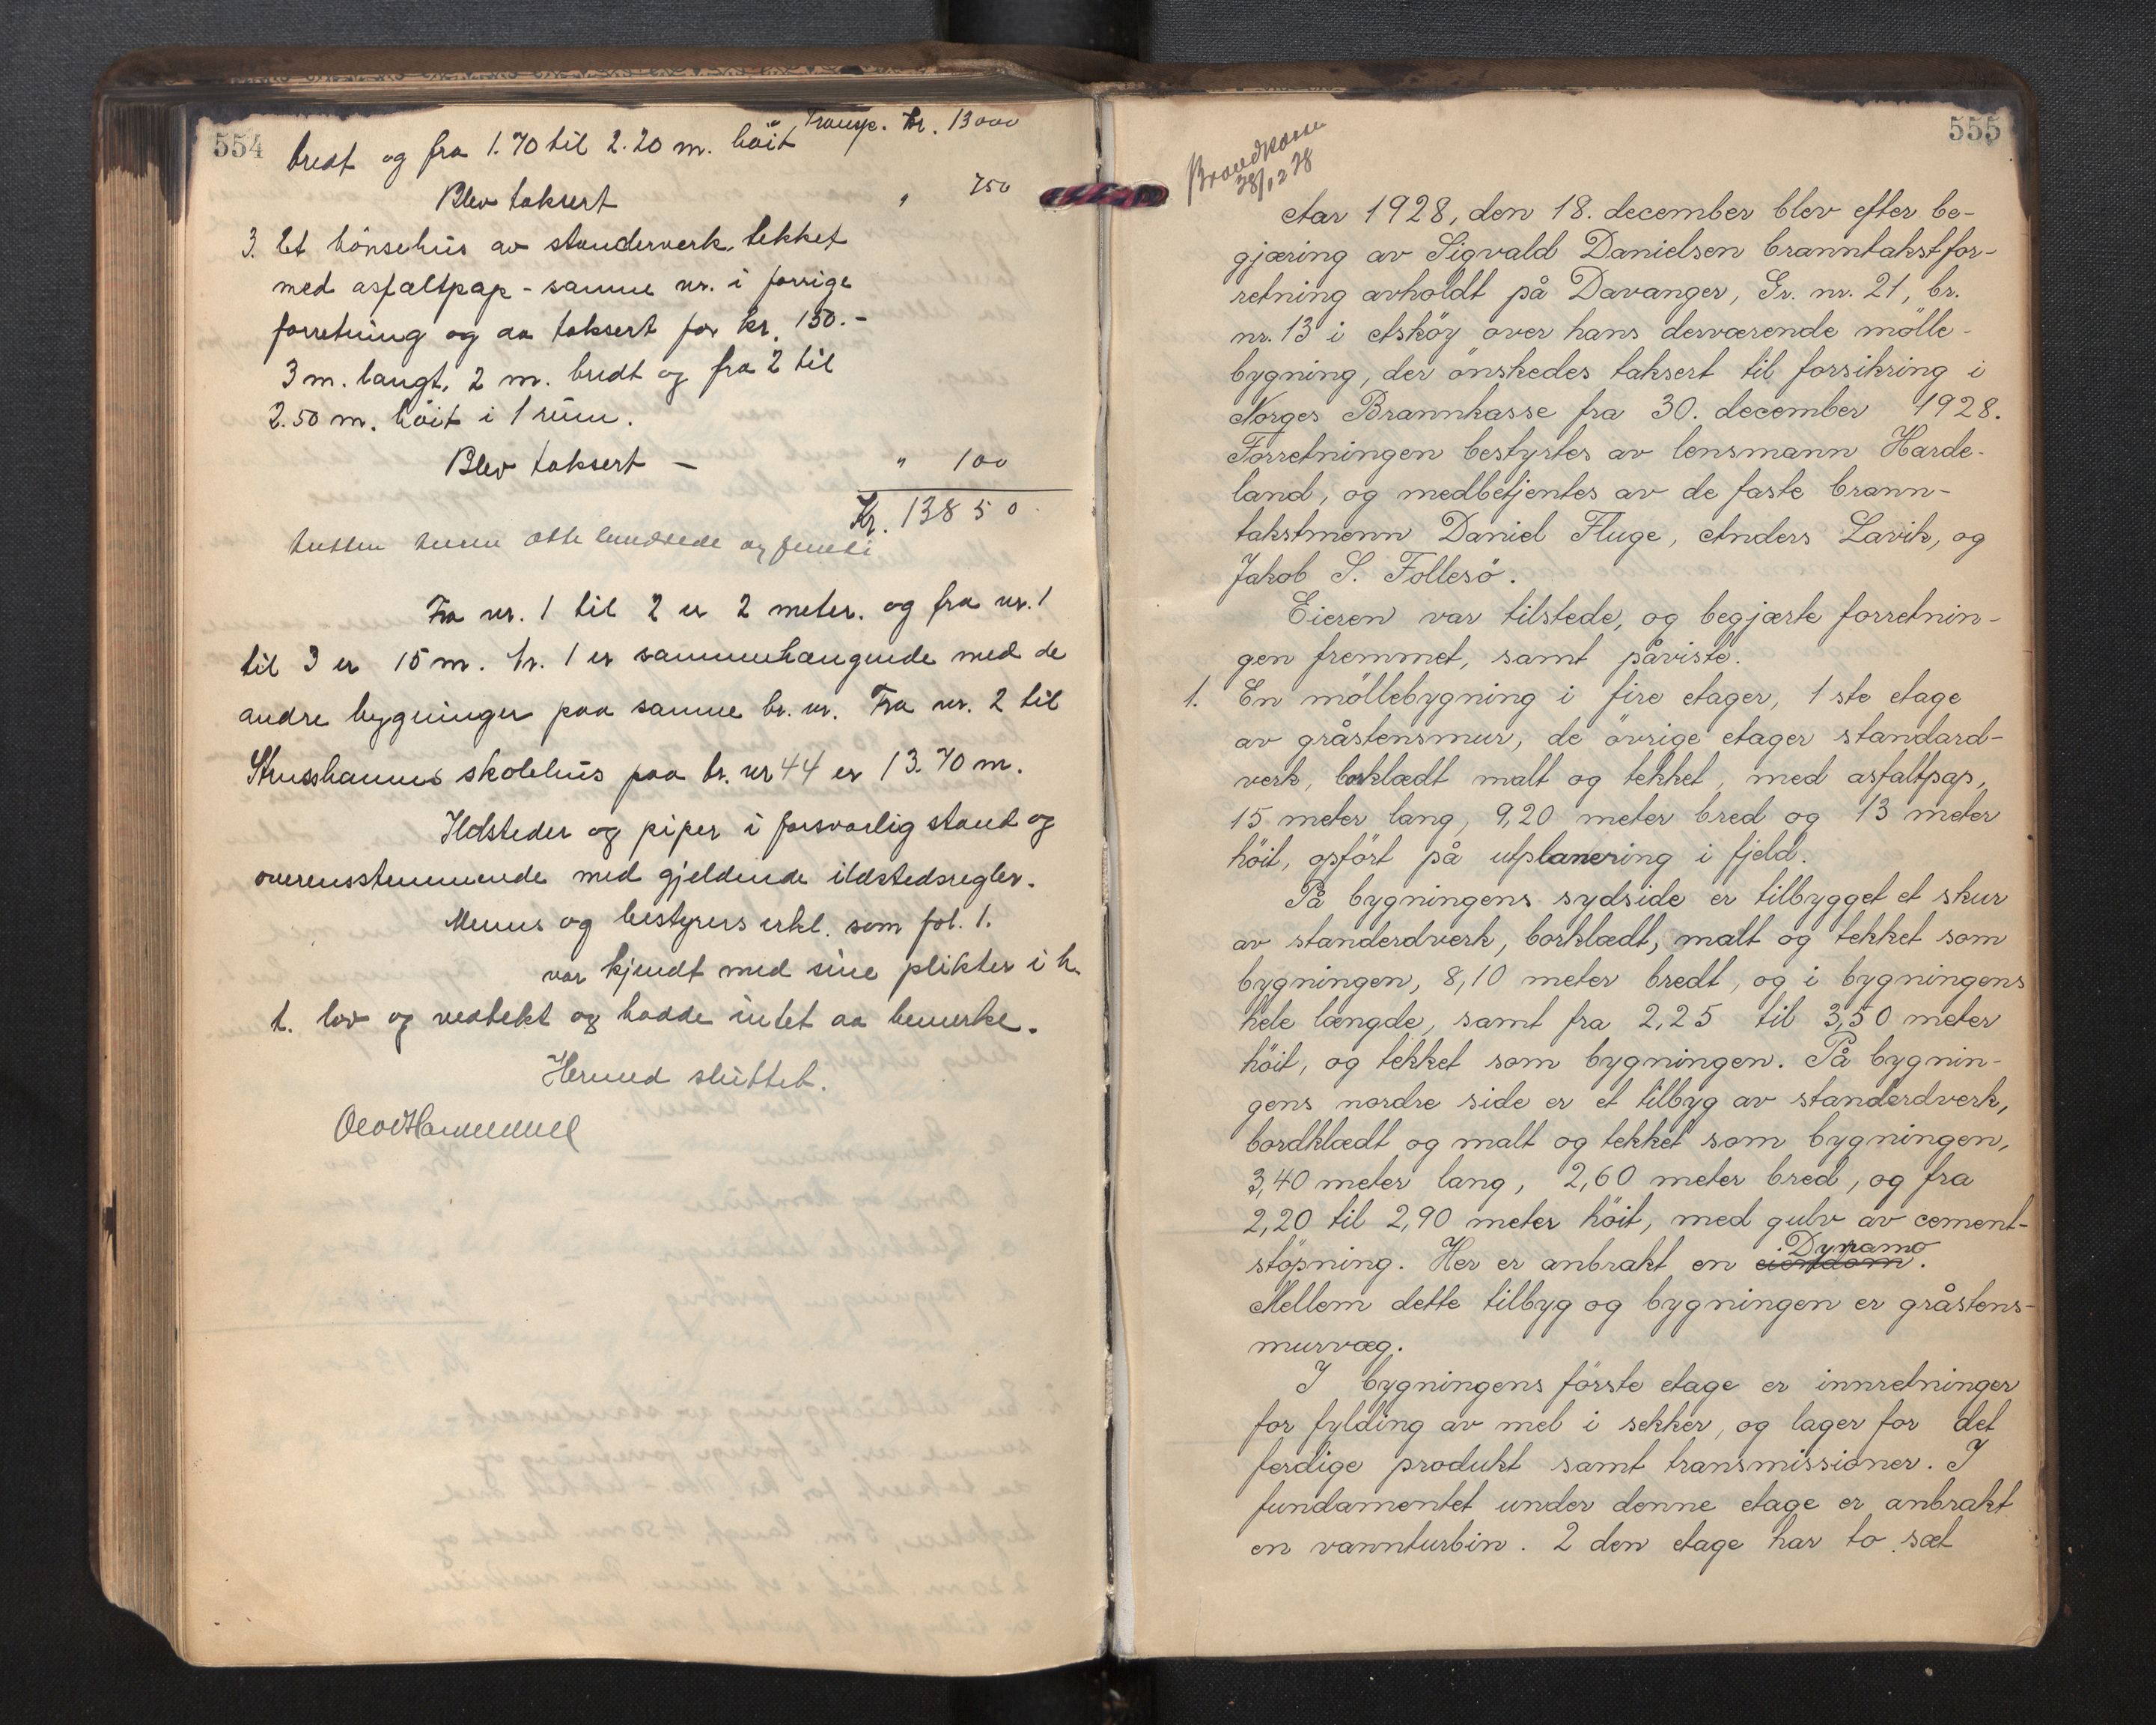 554
Transp. kr. 13000
bredt og fra 1.70 til 2.20 m. höit
Blev taksert " 750
3. Et hönsehus av standerverk tekket
med asfaltpap - samme nr. i forrige
forretning og da taksert for kr. 150.-
3 m. langt, 2 m. bredt og fra 2 til
2.50 m. höit i 1 rum.
Blev taksert - " 100
Kr. 13850
tretten tusen otte hundrede og femti
Fra nr. 1 til 2 er 2 meter. og fra nr. 1
til 3 er 15 m. Nr. 1 er sammenhængende med de
andre bygninger paa samme br. nr. Fra nr. 2 til
Strusshamns skolehus paa br. nr 44 er 13.70 m.
Ildsteder og piper i forsvarlig stand og
overensstemmende med gjeldende ildstedsregler.
Menns og bestyrers erkl. som fol. 1.
var kjendt med sine plikter i h.
t. lov og vedtekt og hadde intet aa bemerke.
Hermed sluttet.
555
Brandkasse
28/12 28
Aar 1928, den 18. december blev efter be-
gjæring av Sigvald Danielsen branntakstfor-
retning avholdt på Davanger, Gr. nr. 21, br.
nr. 13 i Asköy over hans derværende mölle-
bygning, der önskedes taksert til forsikring i
Norges Brannkasse fra 30. december 1928.
Forretningen bestyrtes av lensmann Harde-
land, og medbetjentes av de faste brann-
takstmenn Daniel Fluge, Anders Lavik, og
Jakob S. Follesö.
Eieren var tilstede, og begjærte forretnin-
gen fremmet, samt påviste.
1. En möllebygning i fire etager, 1 ste etage
av gråstensmur, de övrige etager standard-
verk, borklædt malt og tekket, med asfaltpap,
15 meter lang, 9,20 meter bred og 13 meter
höit, opfört på utplanering i fjeld.
På bygningens sydside er tilbygget et skur
av standerdverk, borklædt, malt og tekket som
bygningen, 8,10 meter bredt, og i bygningens
hele længde, samt fra 2,25 til 3,50 meter
höit, og tekket som bygningen. På bygnin-
gens nordre side er et tilbyg av standerdverk,
bordklædt og malt og tekket som bygningen,
3,40 meter lang, 2,60 meter bred, og fra
2,20 til 2,90 meter höit, med gulv av cement-
stöpning. Her er anbrakt en eiendom Dynamo.
Mellem dette tilbyg og bygningen er gråstens-
murvæg.
I bygningens förste etage er innretninger
for fylding av mel i sekker, og lager for det
ferdige produkt samt transmissioner. I
fundamentet under denne etage er anbrakt
en vannturbin. 2 den etage har to sæt